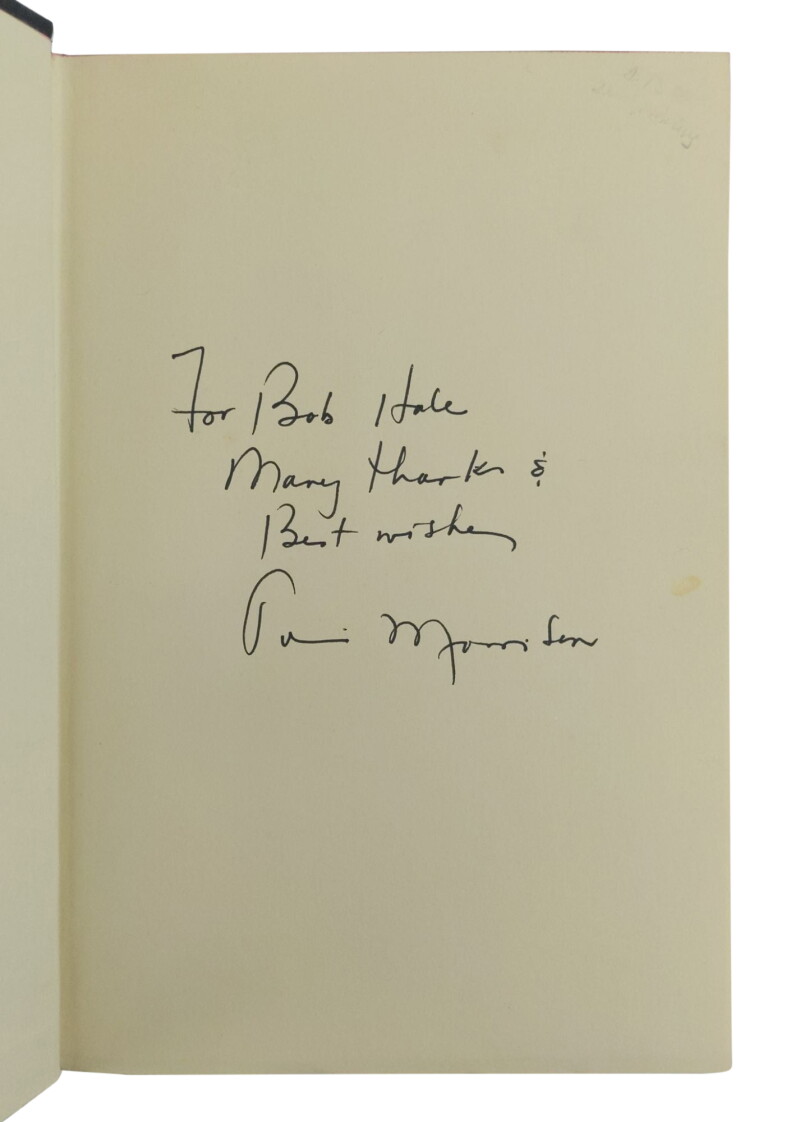 For Bob Hale
Many thanks &
Best wishes
Toni Morrison